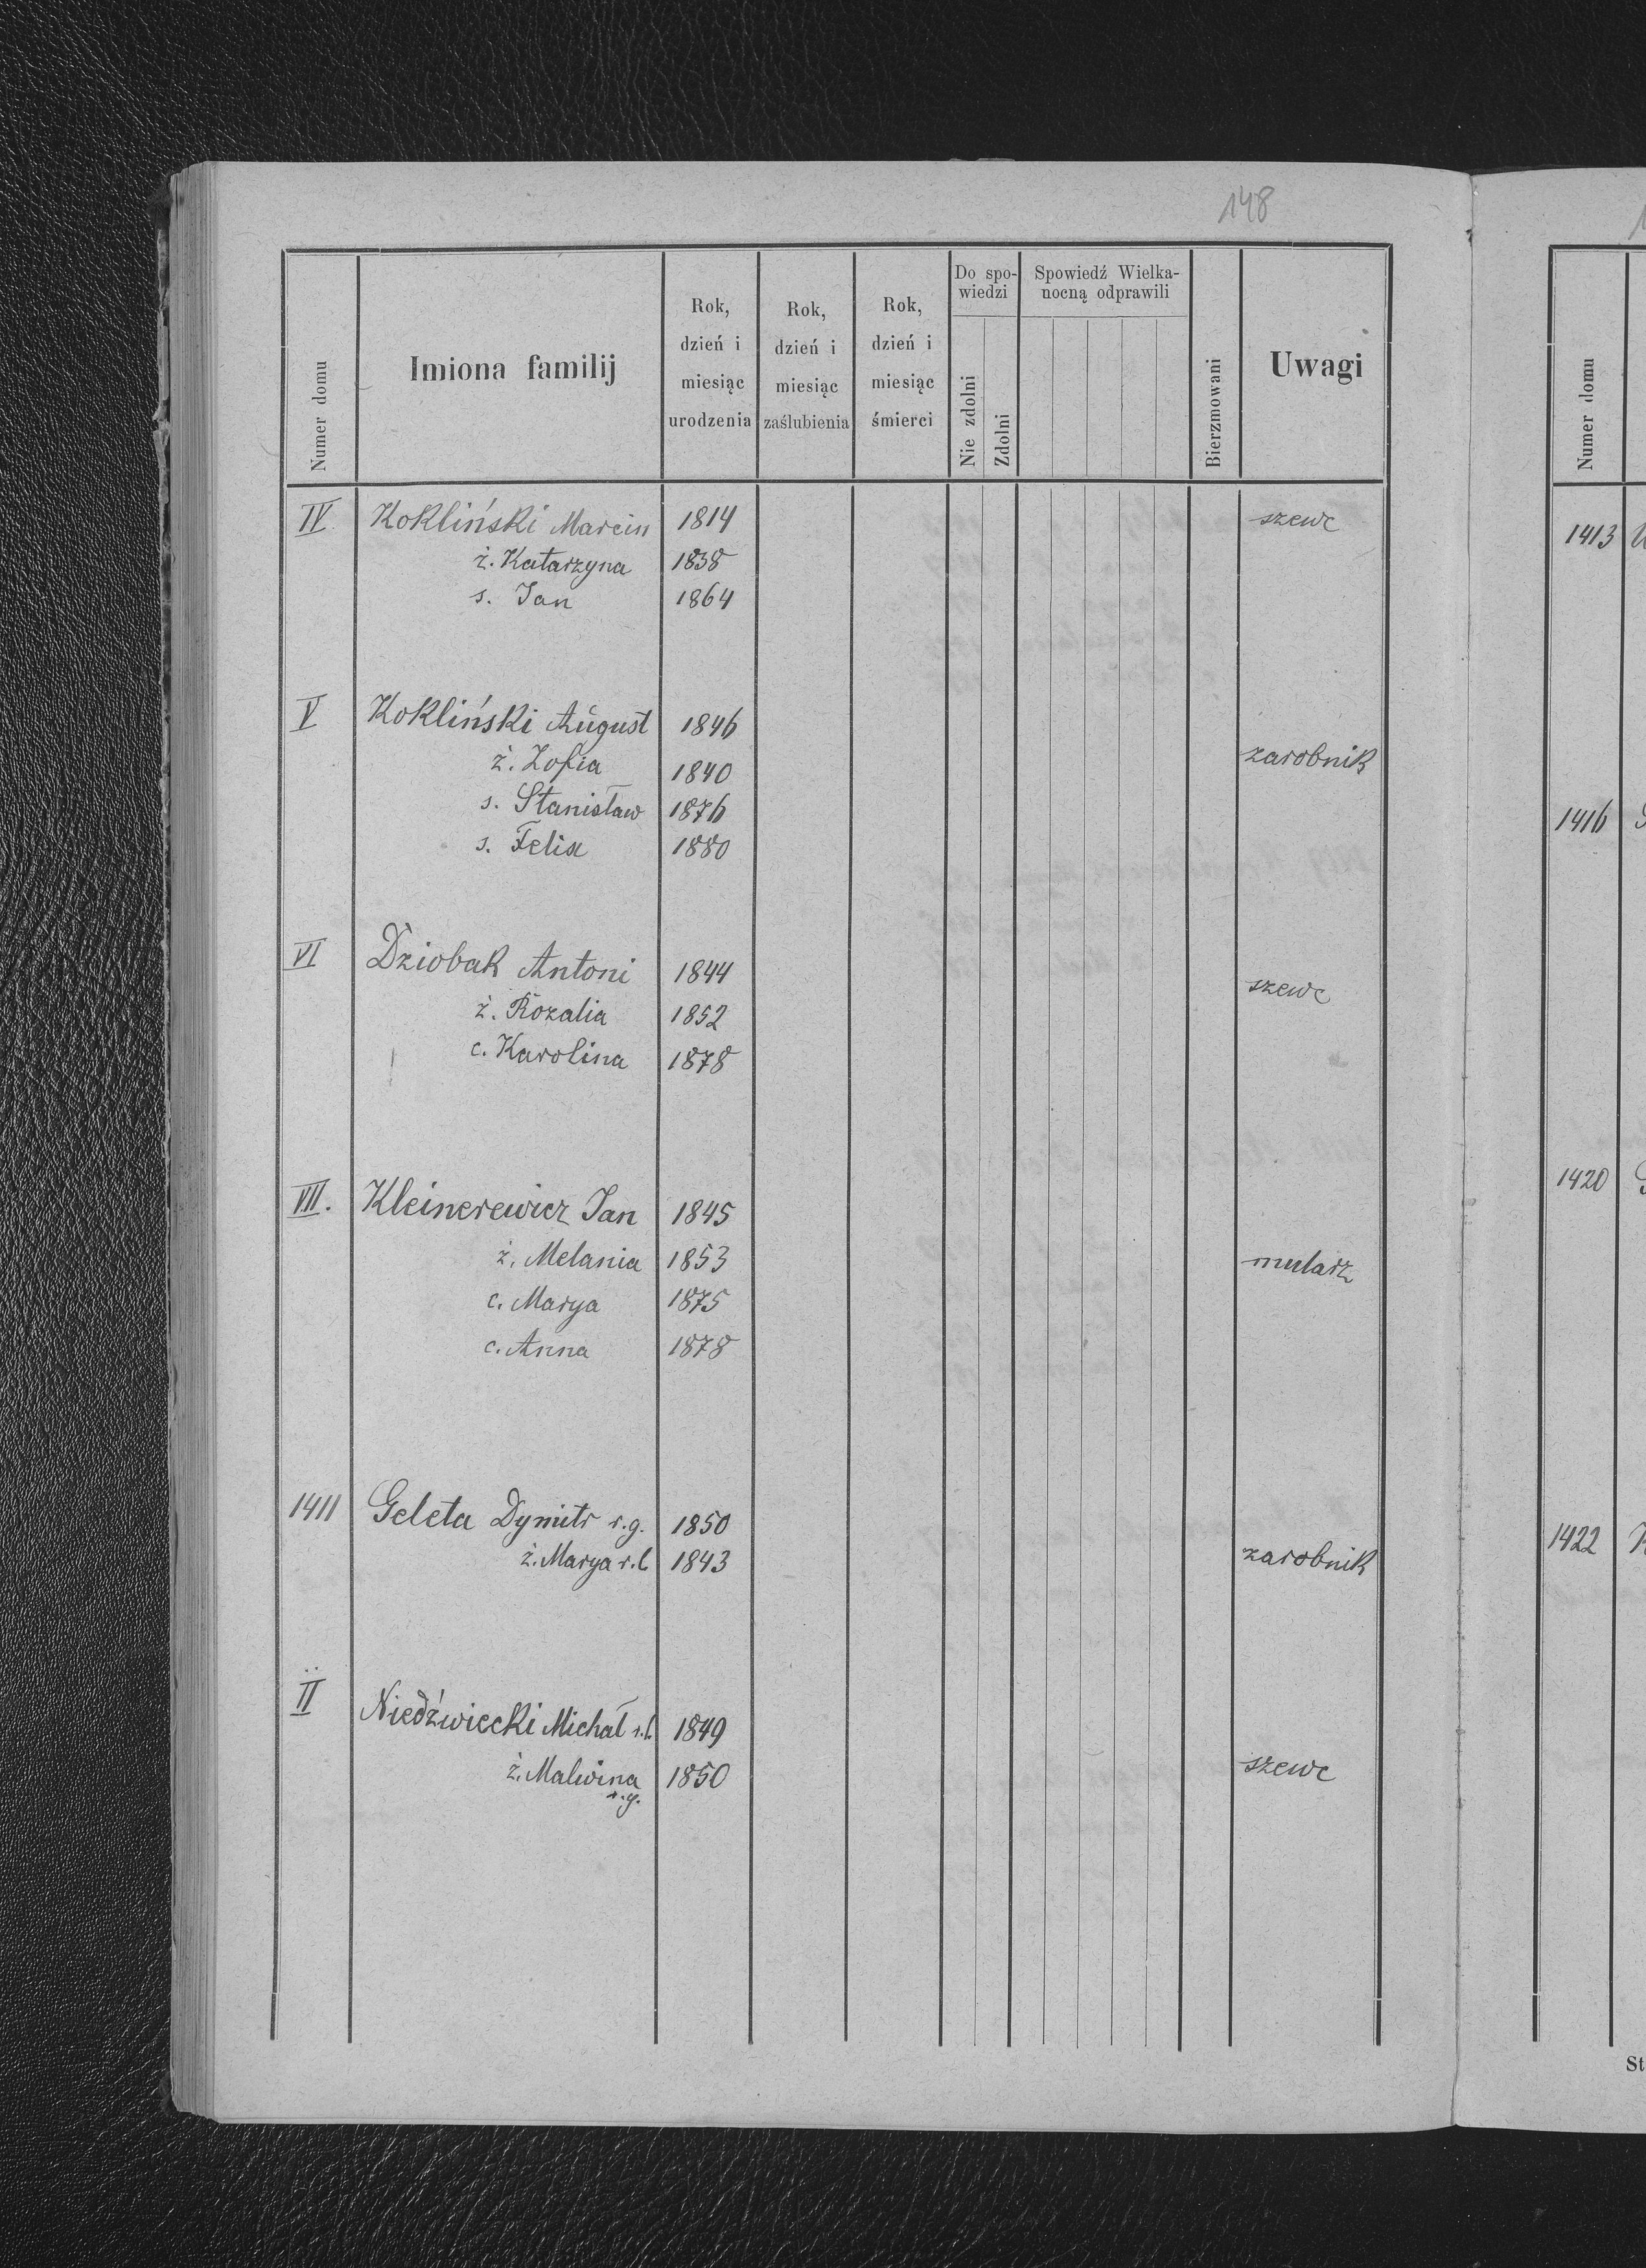 148
Numer domu
Imiona familij
Rok, dzień i miesiąc urodzenia
Rok, dzień i miesiąc zaślubienia
Rok, dzień i miesiąc śmierci
Do spo-
wiedzi
Nie zdolni
Zdolni
Spowiedź Wielka-
nocną odprawili
Bierzmowani
Uwagi
IV Kokliński Marcin 1814 szewc
ż. Katarzyna 1838
s. Jan 1864
V Kokliński August 1846
ż. Zofia 1840 zarobnik
s. Stanisław 1876
s. Felix 1880
VI Dziobak Antoni 1844 szewc
ż. Rozalia 1852
c. Karolina 1878
VII. Kleinerewicz Jan 1845
ż. Melania 1853 mularz
c. Marya 1875
c. Anna 1878
1411 Geleta Dymitr r.g. 1850
ż. Marya r.l 1843 zarobnik
II Niedźwiecki Michał r.l. 1849
ż. Malwina 1850 szewc
r.g.
Numer domu
1413
1416
1420
1422
St